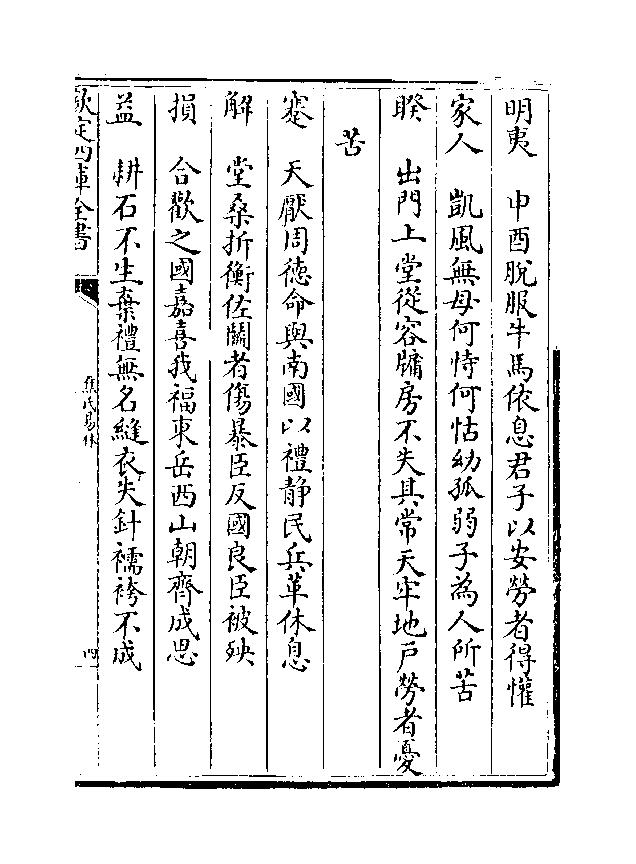 明夷　申酉脫服牛馬依息君子以安勞者得懽
家人　凱風無母何恃何怙幼孤弱子為人所苦
睽　出門上堂從容牖房不失其常天牢地戸勞者憂
苦
蹇　天厭周徳命與南國以禮静民兵革休息
解　堂桑折衡佐鬭者傷暴臣反國良臣被殃
損　合歡之國嘉喜我福東岳西山朝齊成恩
益　耕石不生棄禮無名縫衣失針襦袴不成
欽定四庫全書
焦氏易林
四